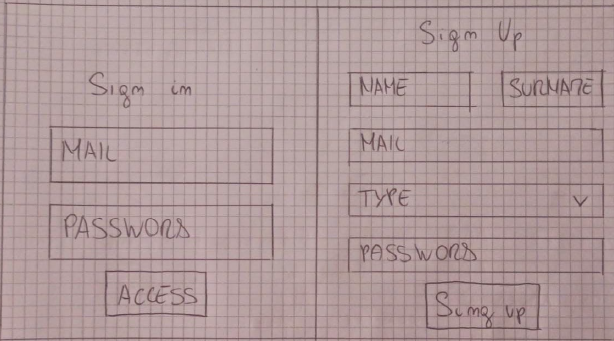 Sign in
MAIL
PASSWORD
ACCESS
Sign Up
NAME SURNAME
MAIL
TYPE
PASSWORD
Sing up